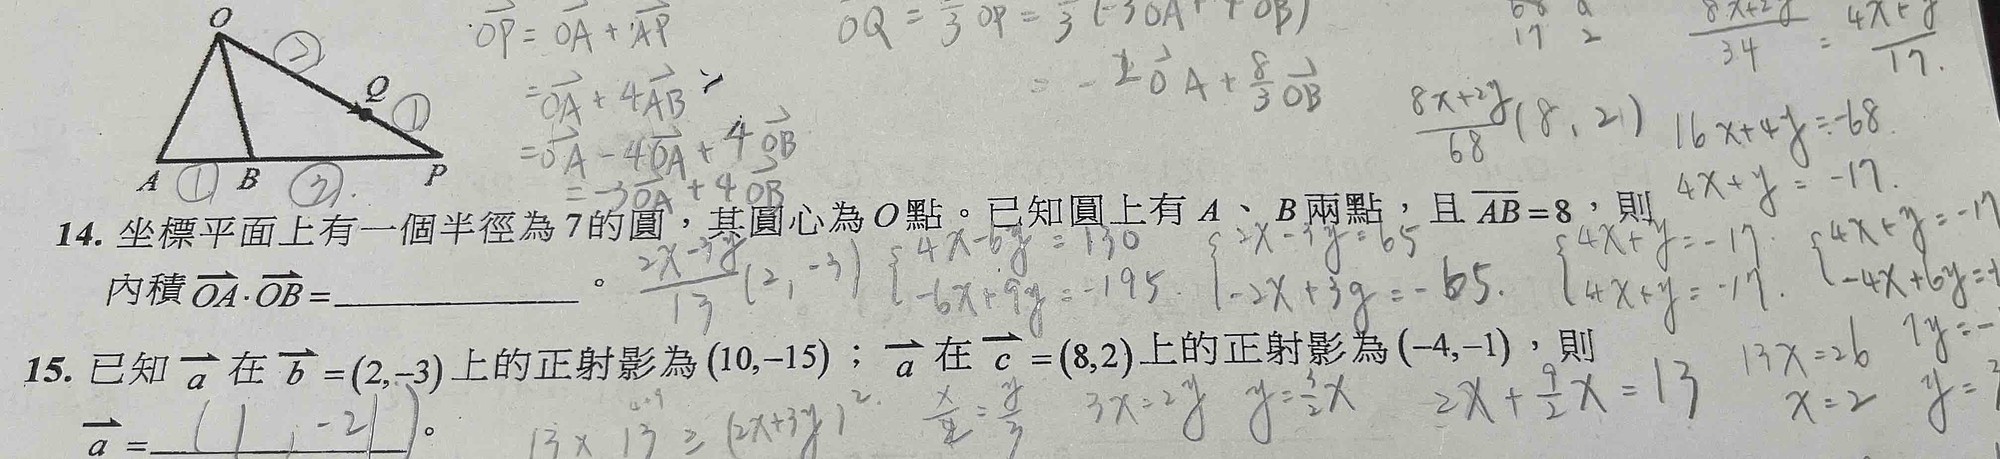 O
②
Q
①
A ① B ③ P
OP = OA + AP
= OA + 4AB
= OA - 4OA + 4OB
= -3OA + 4OB
OQ = 3 OP = 3 (-3OA + 4OB)
= -2OA + 8/3 OB
17 2
8x+2y/34 = 4x+y/17.
8x+2y/68 (8, 2)
16x+4y=-68.
4x+y = -17.
14. 坐標平面上有一個半徑為7的圓，其圓心為O點。已知圓上有A、B兩點，且AB=8，則
內積OA·OB=__________。
2x-3y/13 (2, -3)
{4x-6y=130
-6x+9y=-195.
{2x-3y=65
-2x+3y=-65.
{4x+y=-17.
4x+y=-17.
{4x+y=-17
-4x+6y=
15. 已知a在b=(2,-3)上的正射影為(10,-15)；a在c=(8,2)上的正射影為(-4,-1)，則
a=(1, -21)。
13 × 13 ≥ (2x+3y)².
x/2 = y/3
3x=2y
y=3/2x
2x+9/2x=13
13x=26
x=2
7y=-
y=